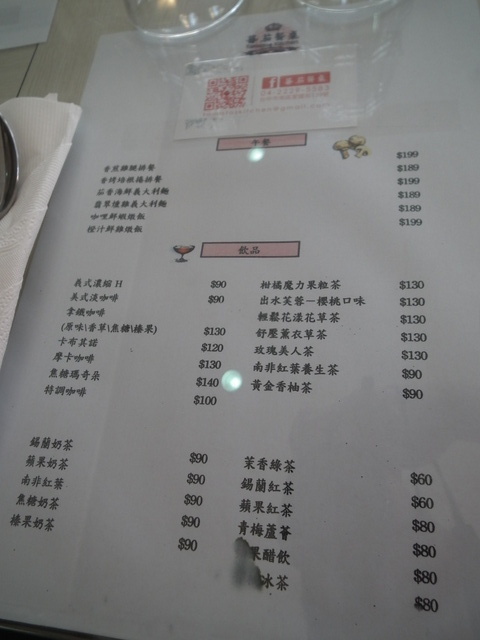 午餐
香煎雞腿排餐 $199
香烤培根捲排餐 $189
茄香海鮮義大利麵 $199
翡翠燻雞義大利麵 $189
咖哩鮮蝦燉飯 $189
橙汁鮮雞燉飯 $199
飲品
義式濃縮 H $90
美式淡咖啡 $90
拿鐵咖啡
(原味\香草\焦糖\榛果) $130
卡布其諾 $120
摩卡咖啡 $130
焦糖瑪奇朵 $140
特調咖啡 $100
柑橘魔力果粒茶 $130
出水芙蓉－櫻桃口味 $130
輕鬆花漾花草茶 $130
舒壓薰衣草茶 $130
玫瑰美人茶 $130
南非紅葉養生茶 $90
黃金香柚茶 $90
錫蘭奶茶 $90
蘋果奶茶 $90
南非紅葉 $90
焦糖奶茶 $90
榛果奶茶 $90
茉香綠茶 $60
錫蘭紅茶 $60
蘋果紅茶 $80
青梅蘆薈 $80
果醋飲 $80
冰茶 $80